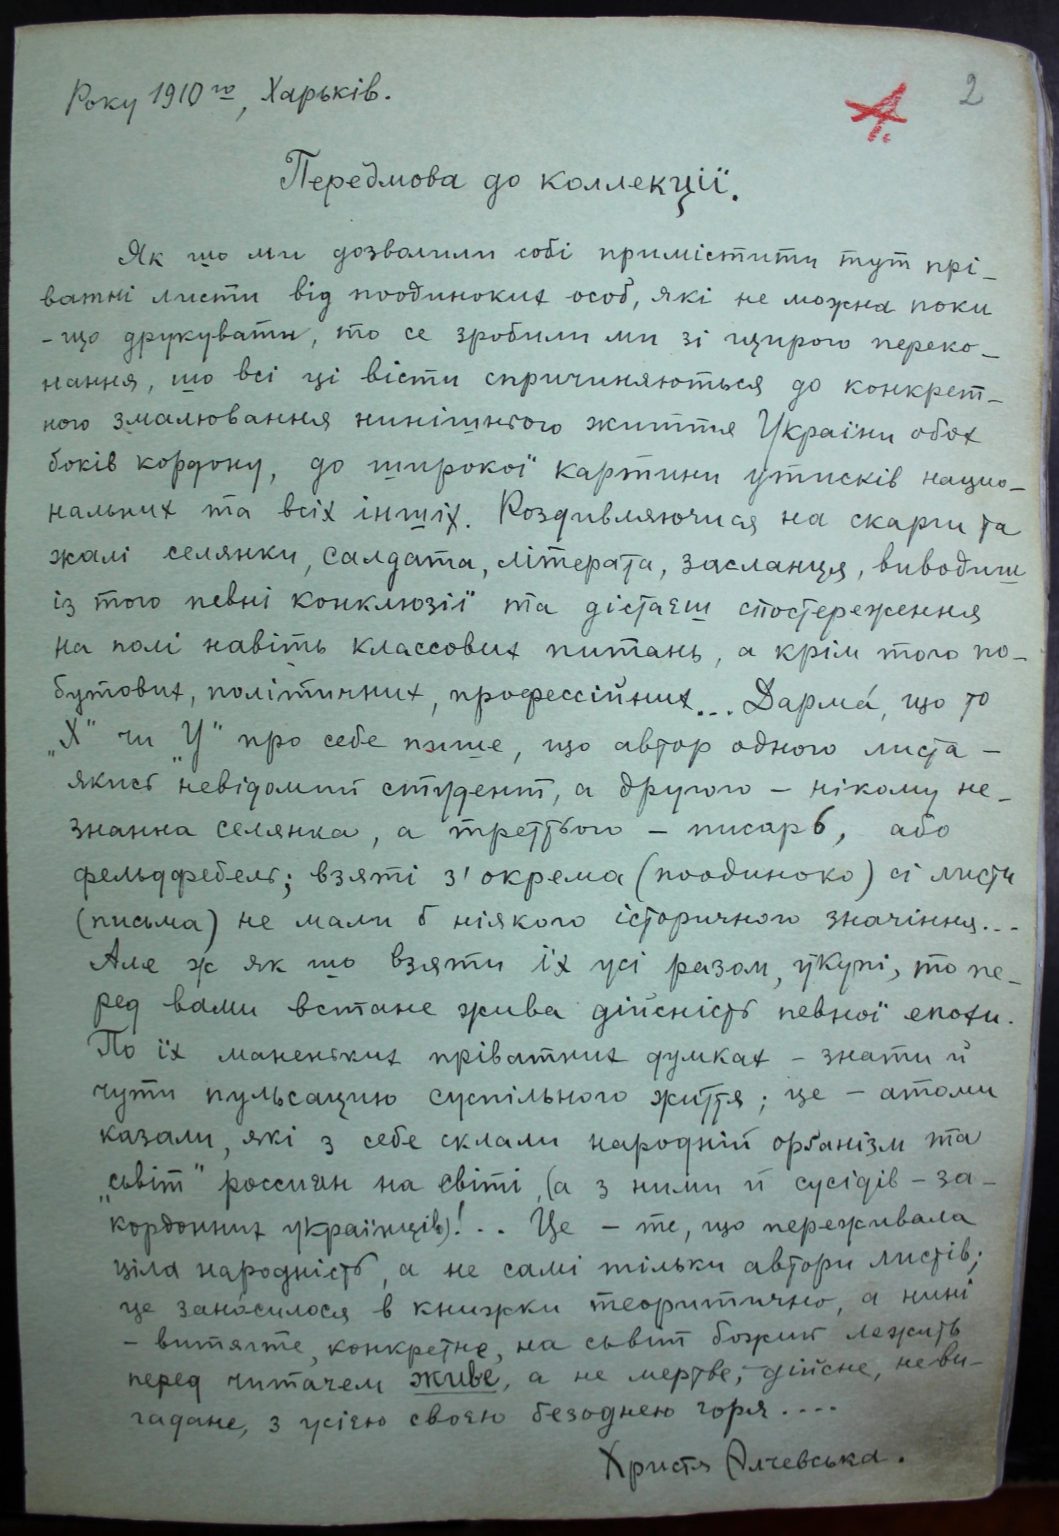 Року 1910го, Харьків.
А.
2
Передмова до коллекції.
Як що ми дозволили собі примістити тут прі-
ватні листи від поодиноких особ, які не можна поки
-що друкувати, то се зробили ми зі щирого переко-
нання, що всі ці вісти спричиняються до конкрет-
ного змалювання нинішнього життя України обох
боків кордону, до широкої картини утисків нацио-
нальних та всіх інших. Роздивляючися на скарги та
жалі селянки, салдата, літерата, засланця, виводиш
із того певні конклюзії та дістаєш спостереження
на полі навіть классових питань, а крім того по-
бутових, політичних, профессійних... Дарма́, що то
„Х" чи „У" про себе пише, що автор одного листа -
якись невідомий студент, а другого - нікому не-
знанна селянка, а третього - писарь, або
фельдфебель; взяті з'окрема (поодиноко) сі листи
(письма) не мали б ніякого історичного значіння...
Але ж як що взяти їх усі разом, укупі, то пе-
ред вами встане жива дійсність певної епохи.
По їх маненьких пріватних думках - знати й
чути пульсацию суспільного життя; це - атоми
казали, які з себе склали народній орґанізм та
„сьвіт" россиян на світі, (а з ними й сусідів - за-
кордонних українців)!.. Це - те, що переживала
ціла народність, а не самі тільки автори листів;
це заносилося в книжки теоритично, а нині
- витягте, конкретне, на сьвіт божий лежить
перед читачем живе, а не мертве; дійсне, неви-
гадане, з усією своєю безоднею горя....
Христя Алчевська.